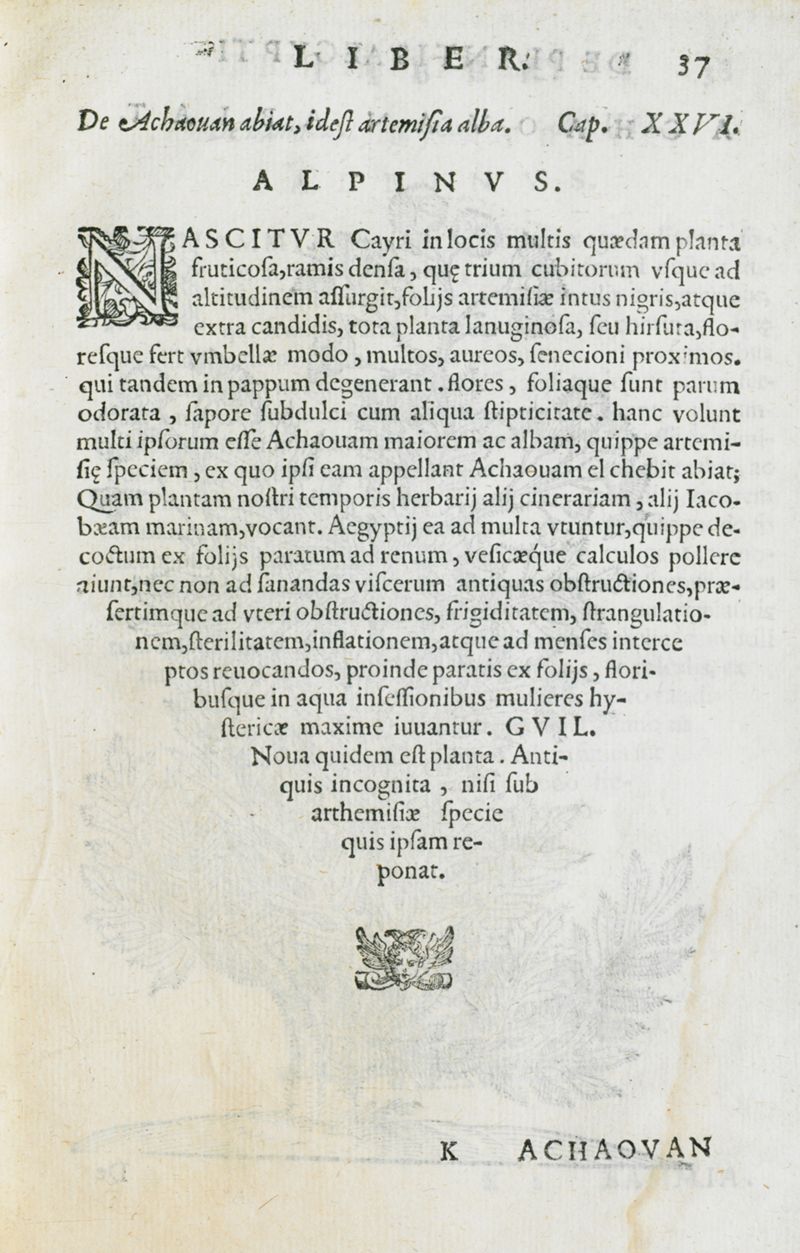 LIBER. 37
De Achaouan abiat, ideſt artemiſia alba. Cap. XXVI.
ALPINVS.
NASCITVR Cayri in locis multis quædam planta
fruticoſa,ramis denſa, quę trium cubitorum vſque ad
altitudinem aſſurgit,folijs artemiſiæ intus nigris,atque
extra candidis, tota planta lanuginoſa, ſeu hirſuta,flo-
reſque fert vmbellæ modo, multos, aureos, ſenecioni proximos.
qui tandem in pappum degenerant. flores, foliaque ſunt parum
odorata, ſapore ſubdulci cum aliqua ſtipticitate. hanc volunt
multi ipſorum eſſe Achaouam maiorem ac albam, quippe artemi-
ſię ſpeciem, ex quo ipſi eam appellant Achaouam el chebit abiat;
Quam plantam noſtri temporis herbarij alij cinerariam, alij Iaco-
bæam marinam,vocant. Aegyptij ea ad multa vtuntur,quippe de-
coctum ex folijs paratum ad renum, veſicæq́ue calculos pollere
aiunt,nec non ad ſanandas viſcerum antiquas obſtructiones,præ-
ſertimque ad vteri obſtructiones, frigiditatem, ſtrangulatio-
nem,ſterilitatem,inflationem,atque ad menſes interce
ptos reuocandos, proinde paratis ex folijs, flori-
buſque in aqua inſeſſionibus mulieres hy-
ſtericæ maxime iuuantur. GVIL.
Noua quidem eſt planta. Anti-
quis incognita, niſi ſub
arthemiſiæ ſpecie
quis ipſam re-
ponat.
K ACHAOVAN